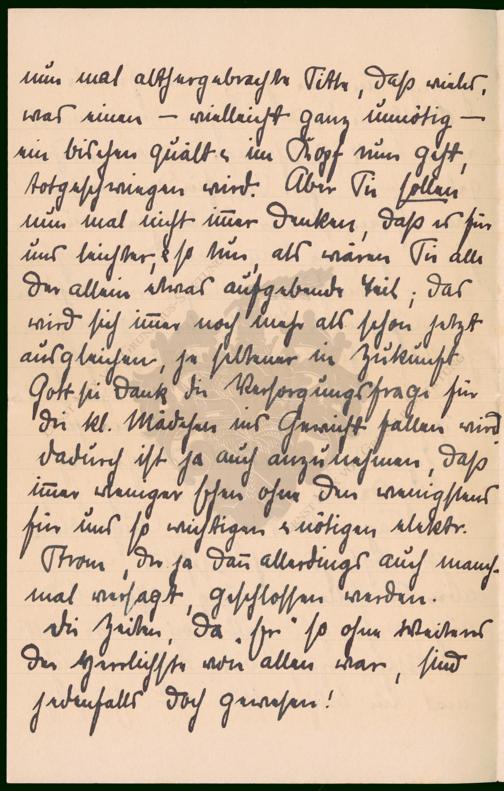 nun mal althergebrachte Sitte, daß vieles,
was einen — vielleicht ganz unnötig —
ein bischen quält u. im Kopf rum geht,
totgeschwiegen wird. Aber Sie sollen
nun mal nicht im̅er denken, daß es für
uns leichter, so tun, als wären Sie alle
der allein etwas aufgebende Teil; das
wird sich im̅er noch mehr als schon jetzt
ausgleichen, je seltener in Zukunft
Gott sei Dank die Versorgungsfrage für
die kl. Mädchen ins Gewicht fallen wird
dadurch ist ja auch anzunehmen, daß
im̅er weniger Ehen ohne den wenigstens
für uns so wichtigen u. nötigen elektr.
Strom, der ja dan̅ allerdings auch manch-
mal versagt, geschlossen werden.
Die Zeiten, da „Er" so ohne Weiteres
der Herrlichste von allen war, sind
jedenfalls doch gewesen!